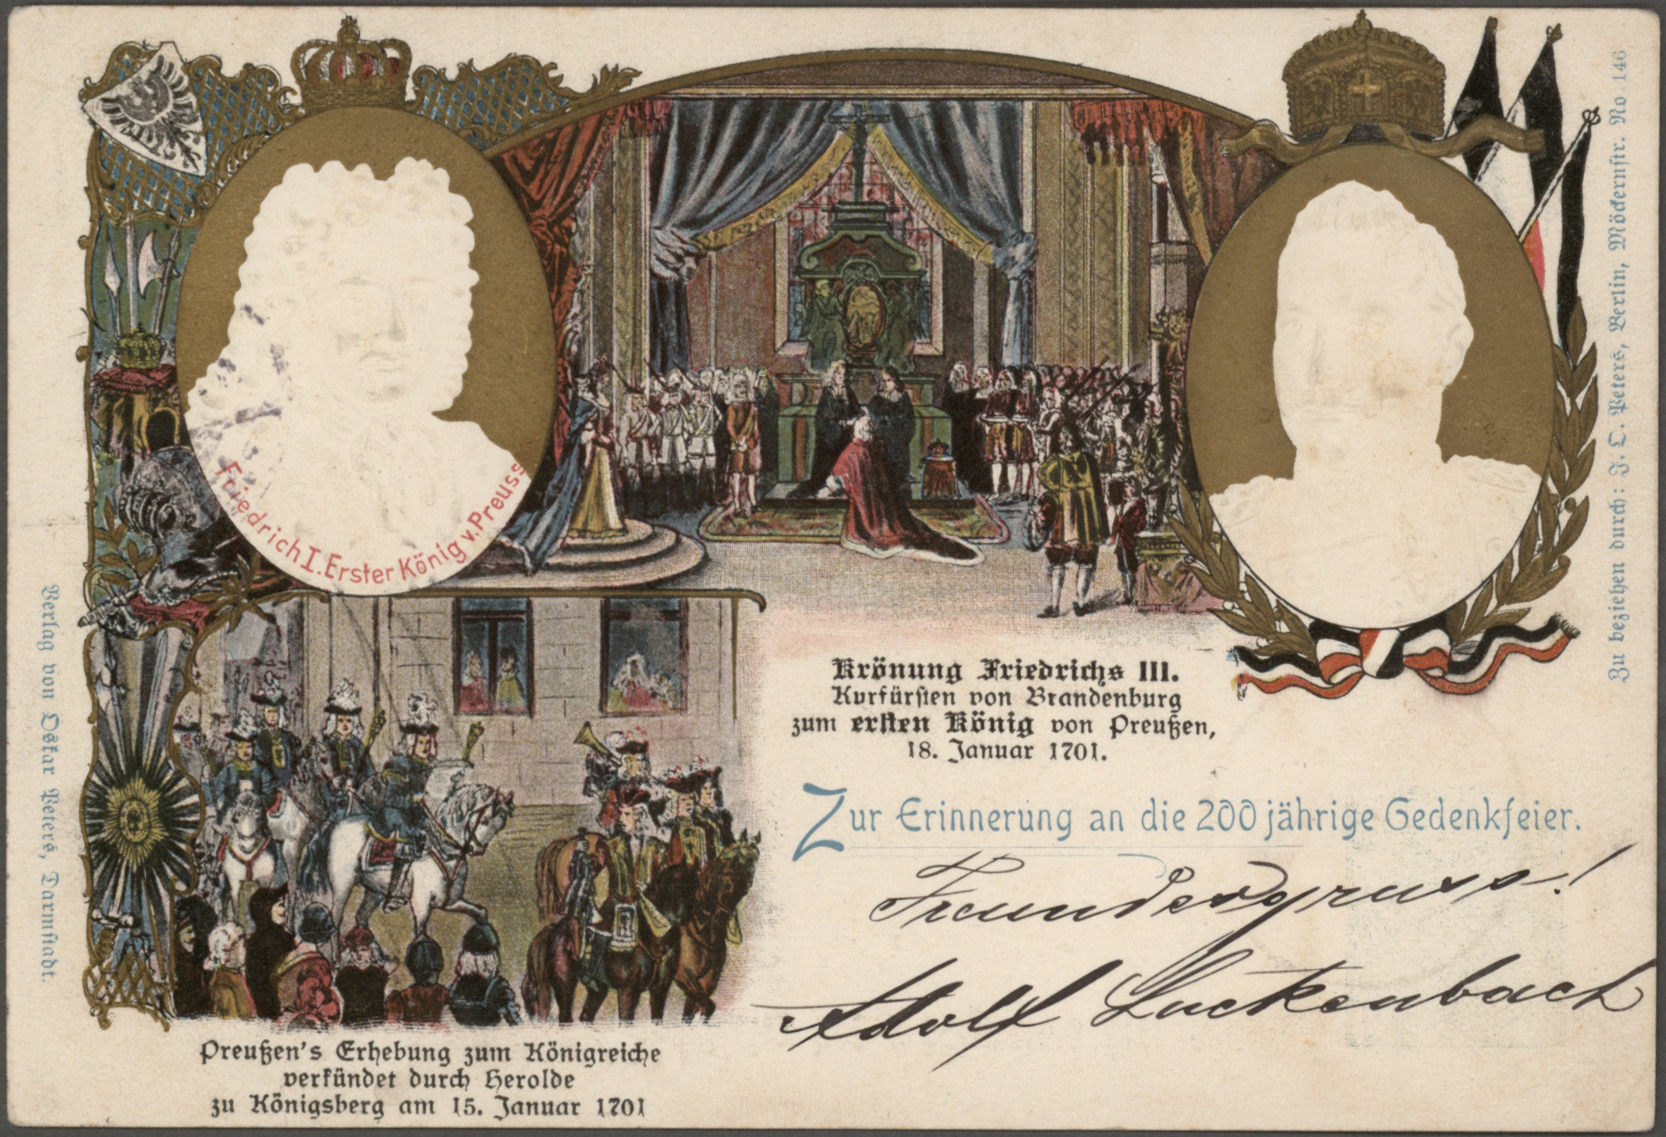 Friedrich I. Erster König v. Preuss
Krönung Friedrichs III.
Kurfürsten von Brandenburg
zum ersten König von Preußen,
18. Januar 1701.
Zur Erinnerung an die 200 jährige Gedenkfeier.
Freundesgruss!
Adolf Luckenbach
Preußen's Erhebung zum Königreiche
verkündet durch Herolde
zu Königsberg am 15. Januar 1701
Verlag von Oskar Peters, Darmstadt.
Zu beziehen durch: J. C. Peters, Berlin, Möckernstr. No 146